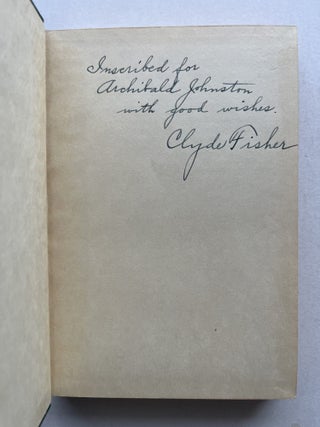 Inscribed for
Archibald Johnston
with good wishes.
Clyde Fisher